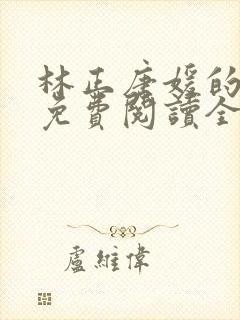 林正唐媛的
免費閱讀全
盧維偉